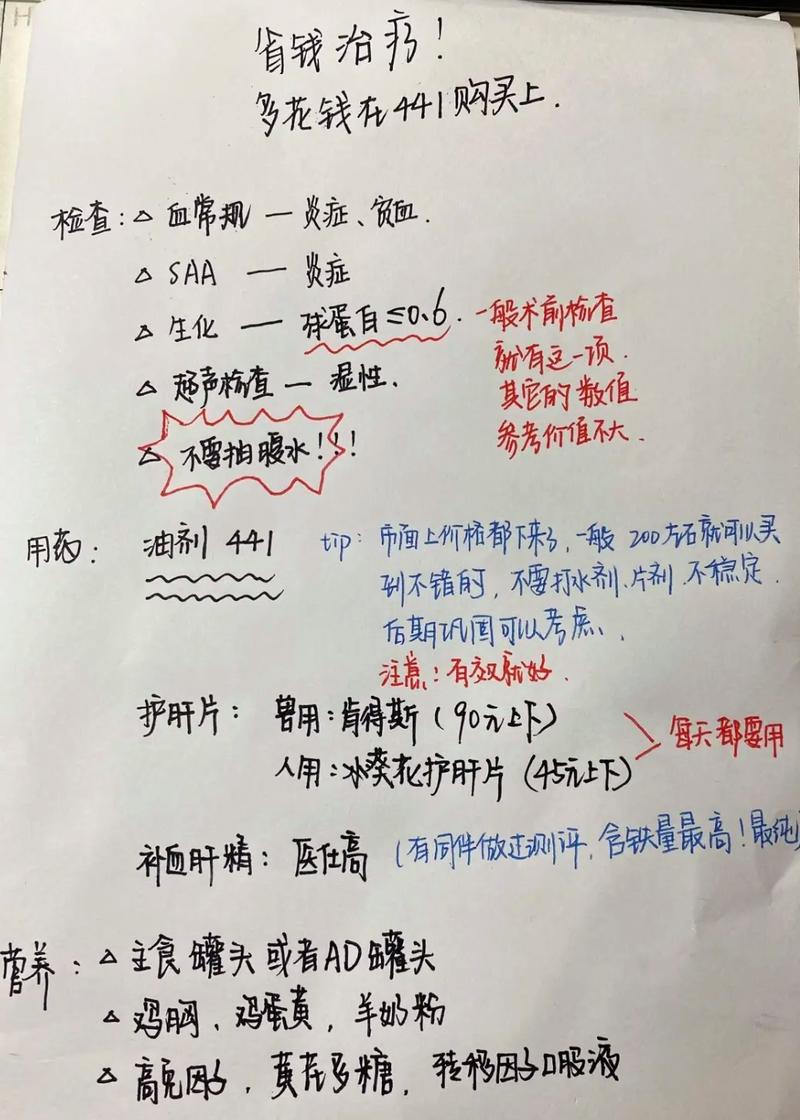 省钱治疗！
多花钱在441购买上.
检查：△ 血常规 — 炎症、贫血.
△ SAA — 炎症
△ 生化 — 球蛋白≤0.6. 一般术前检查
就有这一项.
其它的数值
参考价值不大.
△ 超声检查 — 湿性.
△ 不要抽腹水！！！
用药： 油剂 441 tip：市面上价格都下来了，一般 200左右就可以买
到不错的，不要打水剂、片剂 不稳定.
后期巩固可以考虑、.
注意：有效就好.
护肝片： 兽用：肯得斯（90元上下）
人用：水葵花护肝片（45元上下） 每天都要用
补血肝精： 医仕高（有同件做过测评，含铁量最高！最纯）
营养：△ 主食罐头或者AD罐头
△ 鸡胸、鸡蛋黄，羊奶粉
△ 高免因子，黄芪多糖，转移因子口服液